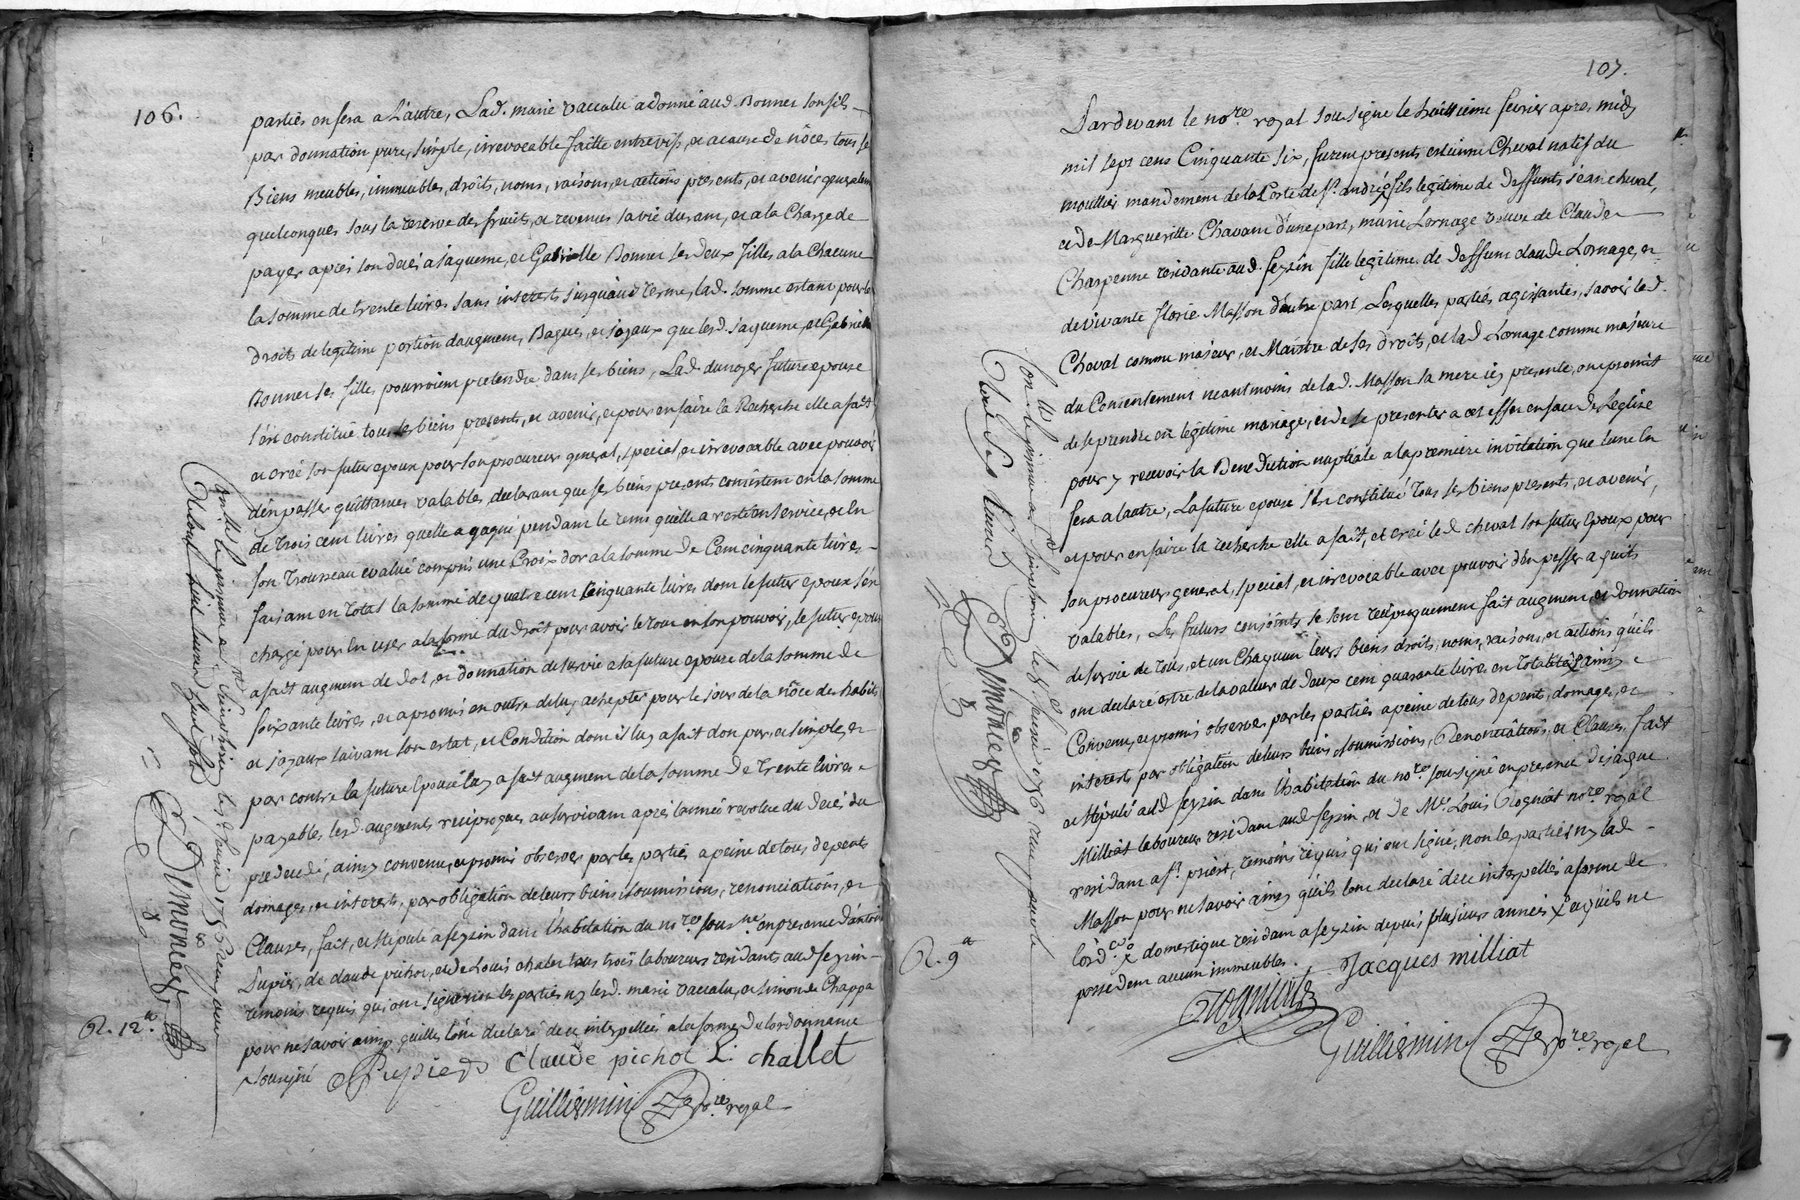 106.
parties en sera a L'autre, Lad. marie vaccalu a donné aud. Bonner son fils
par donnation pure, simple, irrevocable faitte entrevifs, et a cause de nôce, tous se
Biens meubles, immeubles, droits, noms, raisons, et actions presents, et avenir generalem
quelconques sous la reserve des fruits, et revenus sa vie durant, et a la Charge de
payer apres son decés a jaquême, et Gabrielle Bonner ses deux filles a la Chacune
la somme de trente livres sans interests jusqu'aud. terme, lad. somme estant pour les
droits de legitime portion daugment, Bagues, et joyaux que lesd. jaqueme, et Gabrielle
Bonner ses filles pourroient pretendre dans ses biens, Lad. dunoyer future epouse
s'est constitué tous ses biens presents, et avenir, et pour en faire la Recherche elle a fait
et créé son futur epoux pour son procureur general, special, et irrevocable avec pouvoir
d'en passer quittances valables, declarant que ses biens presents consistent en la somme
de trois cent livres quelle a gagné pendant le tems quelle a resté en service, et en
son trousseau evalué compris une Croix dor a la somme de Cent cinquante livres
faisant en total la somme de quatre cent cinquante livres dont le futur epoux s'en
chargé pour en user a la forme du droit pour avoir le tout en son pouvoir, le futur epoux
a fait augment de dot, et donnation de survie a sa future epouse de la somme de
soixante livres, et a promis en outre de luy achepter pour le jour de la nôce des habits
et joyaux suivant son estat, et Condition dont il luy a fait don pur, et simple, et
par contre la future Epouse luy a fait augment de la somme de trente livres
payables lesd. augments reciproques au survivant apres l'année revolue du decés du
predecedé, ainsy convenu, et promis observer par les parties a peine de tous depents
domages, et interests, par obligation de leurs biens soumissions, renonciations, et
Clauses, fait, et stipulé a seyzin dans l'habitation du nore. sousne. en presence d'antoine
Dupier, de claude pichot, et de Louis chalet tous trois laboureurs residants aud. seyzin
temoins requis qui ont signé non les parties ny lesd. marie vaccalu, et simonde Chappa
pour ne savoir ainsy quelles l'ont declaré de ce interpellées a la forme de l'ordonnance
R. 12
soussigné Dupier Claude pichot L. challet
Guilliermin nore. royal
Conllé le premier à St. simphorien les fevrier 1756 Reçu pour
Desmones
107.
Pardevant le nore. royal soussigné le huittieme fevrier apres midy
mil sept cens Cinquante six, furent presents estienne Cheval natif du
mouthier mandement de la Coste de St. andré fils legitime de deffunts jean cheval,
et de Margueritte Chavant d'une part, marie Lornage veuve de Claude
Charpenne residante aud. seyzin fille legitime de deffunt claude Lornage, et
de vivante florie Masson d'autre part Lesquelles parties agissantes, savoir led.
Cheval comme majeur, et Maistre de ses droits, et lad. Lornage comme majeure
du Consentement neantmoins de lad. Masson sa mere icy presente, ont promis
de se prendre en legitime mariage, et de se presenter a cet effet en face de Leglise
pour y recevoir la Benediction nuptiale a la premiere invitation que lune en
sera a lautre, La future epouse s'est constitué tous ses biens presents, et avenir,
et pour en faire la recherche elle a fait, et créé led. cheval son futur Epoux pour
son procureur general, special, et irrevocable avec pouvoir d'en passer aquits
valables, Les futurs conjoints se sont reciproquement fait augment, et donnation
de survie de tous, et un Chaquun leurs biens droits, noms, raisons, et actions quils
ont declaré estre de la valleur de deux cent quarante livres en totalité ainsy
Convenu, et promis observer par les parties a peine de tous depents, domages, et
interests par obligation de leurs biens soumissions, Renonciations, et Clauses, fait
et stipulé aud. seyzin dans l'habitation du nore. soussigné en presence de jaque
Milliat laboureur residant aud. seyzin, et de Mr. Louis Trogniat nore. royal
residant a St. priest, temoins requis qui ont signé, non les parties ny lad.
Masson pour ne savoir ainsy quils lont declaré de ce interpellés a forme de
R. 9
lord.ce x domestique residant a seyzin depuis plusieurs années x et quils ne
possedent aucun immeubles.
Jacques milliat
Guilliermin nore. royal
Desmones